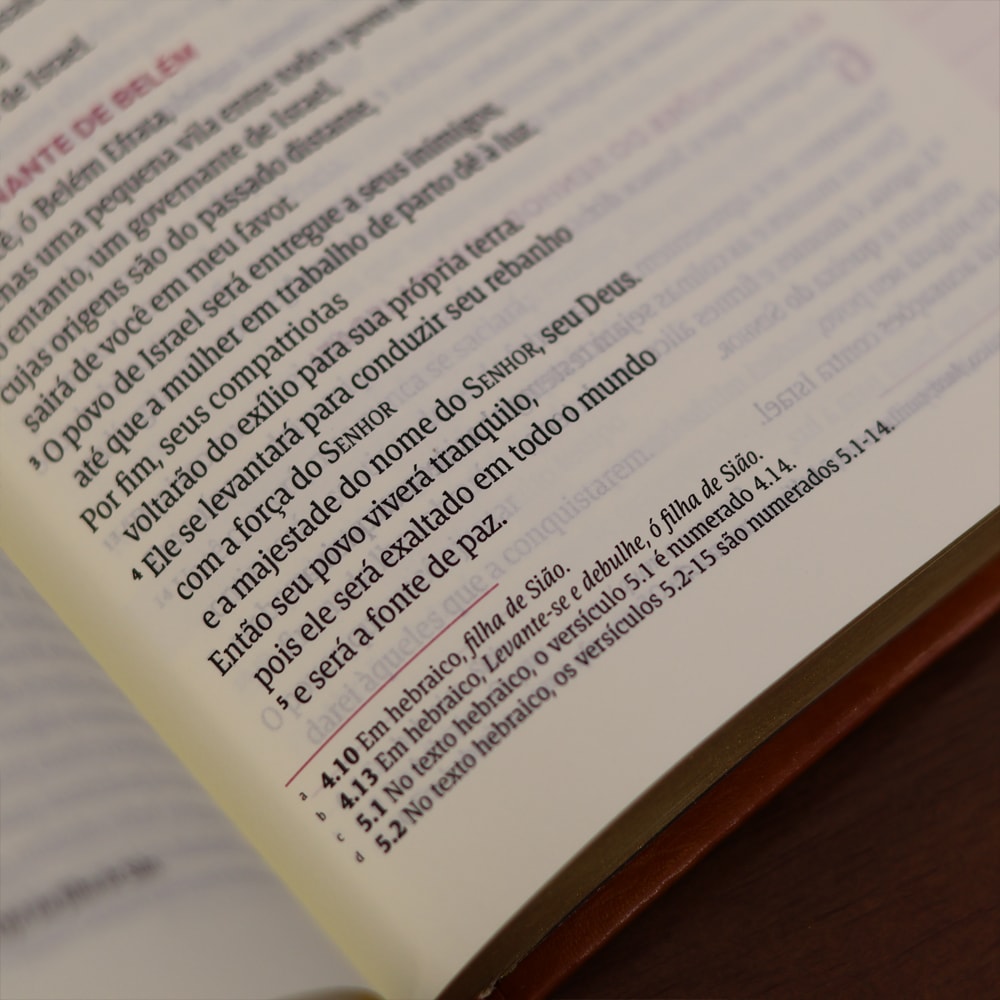 de Israel
NANTE DE BELÉM
ê, ó Belém Efrata,
enas uma pequena vila entre todo o povo
o entanto, um governante de Israel,
cujas origens são do passado distante,
sairá de você em meu favor.
3 O povo de Israel será entregue a seus inimigos,
até que a mulher em trabalho de parto dê à luz.
Por fim, seus compatriotas
voltarão do exílio para sua própria terra.
4 Ele se levantará para conduzir seu rebanho
com a força do SENHOR
e a majestade do nome do SENHOR, seu Deus.
Então seu povo viverá tranquilo,
pois ele será exaltado em todo o mundo
5 e será a fonte de paz.
a 4.10 Em hebraico, filha de Sião.
b 4.13 Em hebraico, Levante-se e debulhe, ó filha de Sião.
c 5.1 No texto hebraico, o versículo 5.1 é numerado 4.14.
d 5.2 No texto hebraico, os versículos 5.2-15 são numerados 5.1-14.